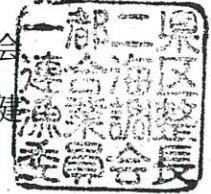 会
健
一都二県
連合海区
漁業調整
委員会長